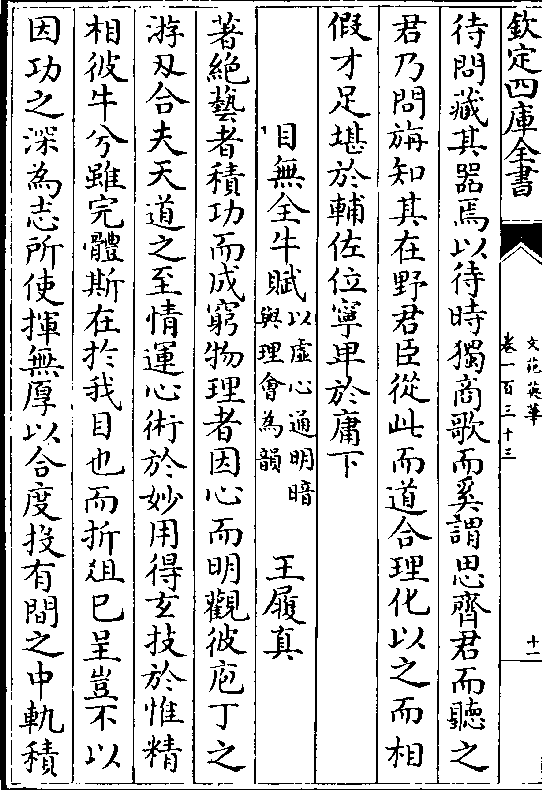 欽定四庫全書
文苑英華
卷一百三十三
十一
待問藏其器焉以待時獨商歌而奚謂思齊君而聽之
君乃問旃知其在野君臣從此而道合理化以之而相
假才足堪於輔佐位寧卑於庸下
目無全牛賦以虛心通明暗與理會為韻 王履真
著絶藝者積功而成窮物理者因心而明觀彼庖丁之
游刄合夫天道之至情運心術於妙用得玄技於惟精
相彼牛兮雖完體斯在於我目也而折俎巳呈豈不以
因功之深為志所使揮無厚以合度投有間之中軌積